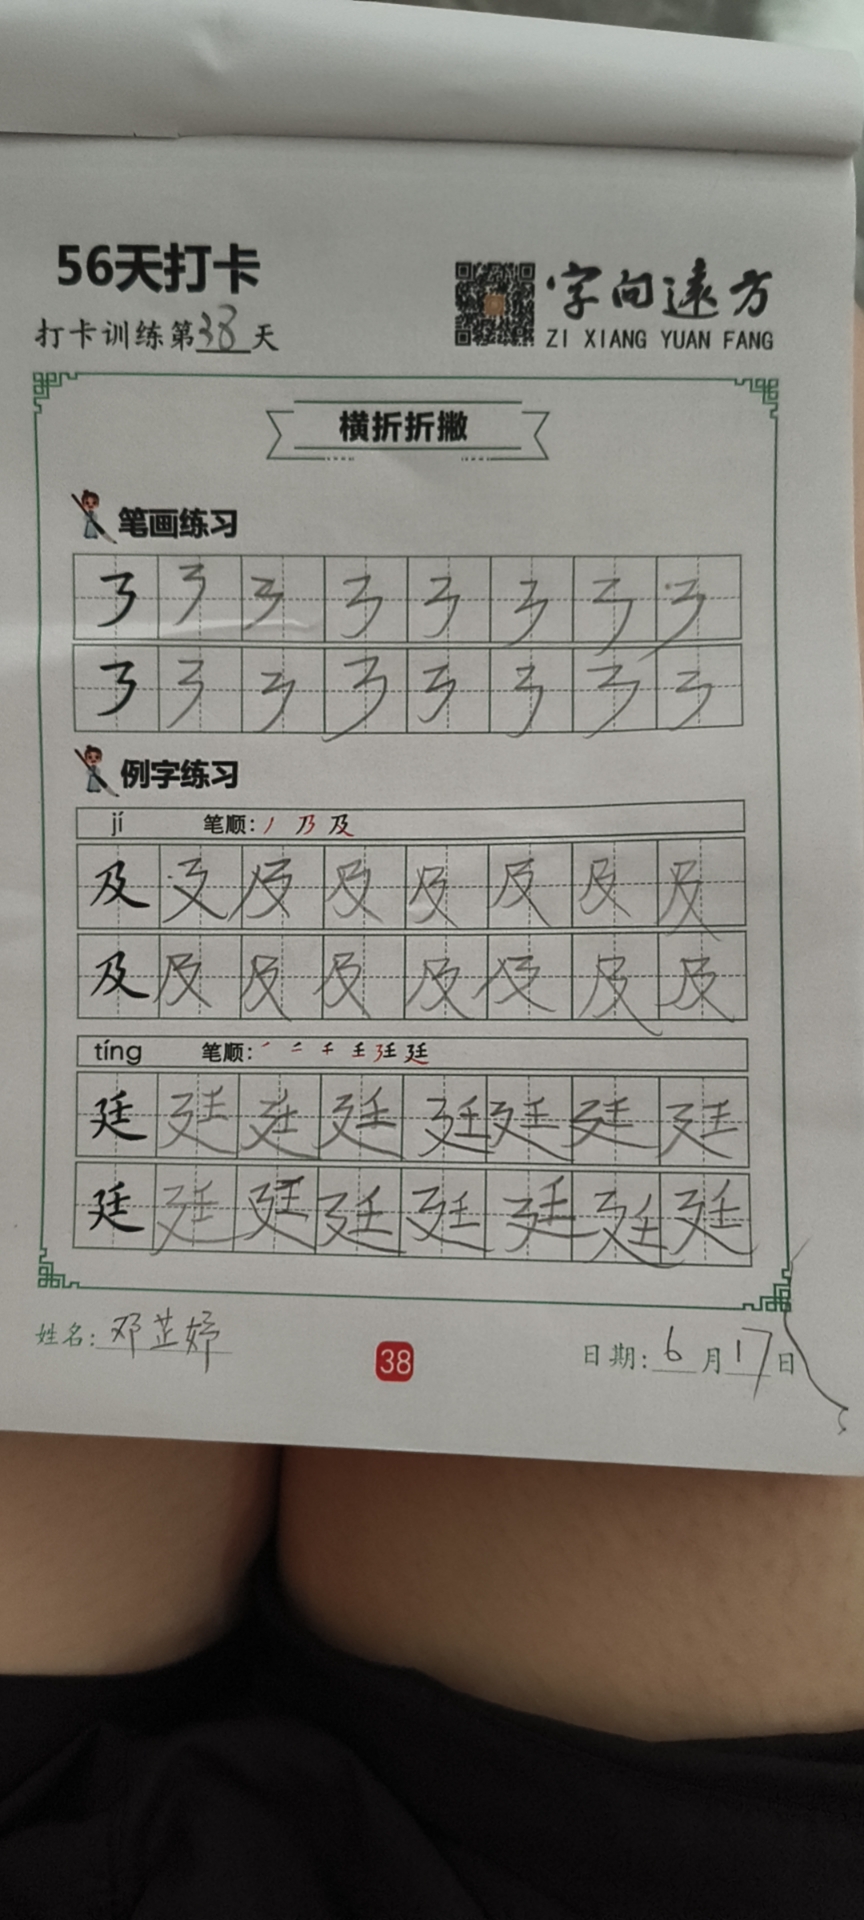 56天打卡
字向遠方
打卡训练第38天
ZI XIANG YUAN FANG
横折折撇
笔画练习
㇋ ㇋ ㇋ ㇋ ㇋ ㇋ ㇋ ㇋
㇋ ㇋ ㇋ ㇋ ㇋ ㇋ ㇋ ㇋
例字练习
jí 笔顺：丿 乃 及
及 及 及 及 及 及 及 及
及 及 及 及 及 及 及 及
tíng 笔顺：
廷 廷 廷 廷 廷 廷 廷 廷
廷 廷 廷 廷 廷 廷 廷 廷
姓名：邓芷妤
38
日期：6月17日